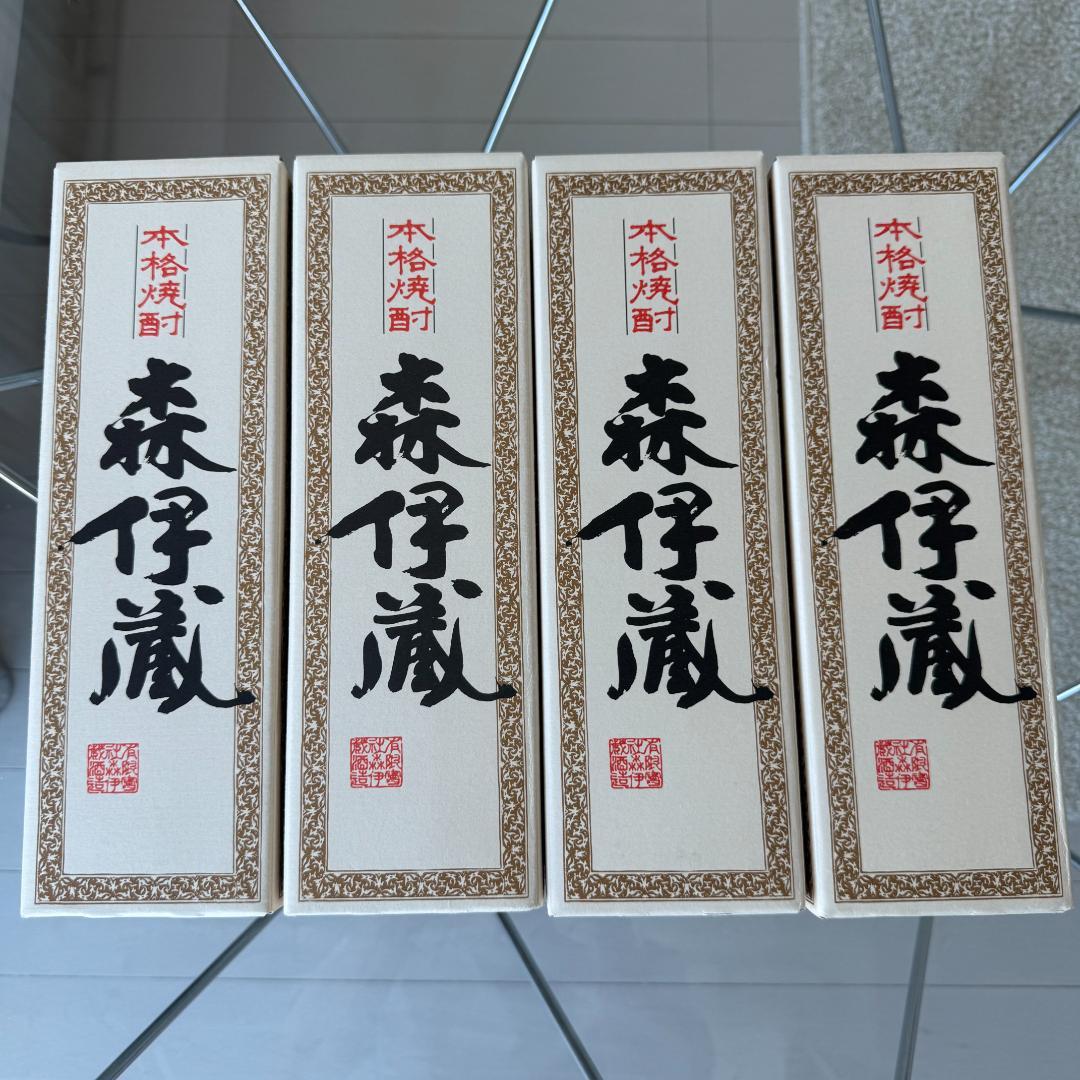 本格焼酎
森伊蔵
有限会社森伊蔵酒造
本格焼酎
森伊蔵
有限会社森伊蔵酒造
本格焼酎
森伊蔵
有限会社森伊蔵酒造
本格焼酎
森伊蔵
有限会社森伊蔵酒造